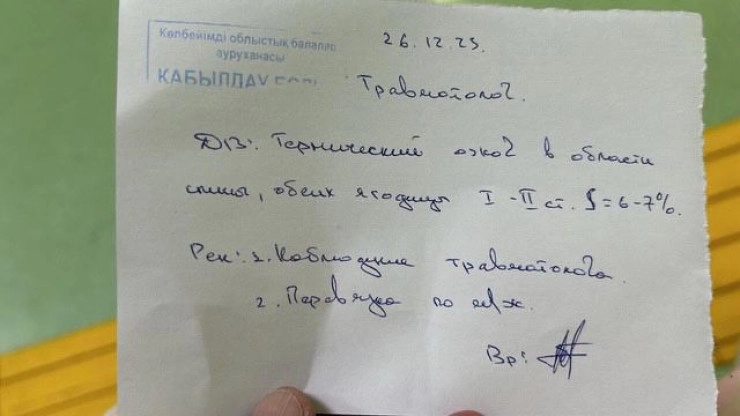 Көпбейімді облыстық балалар
ауруханасы
ҚАБЫЛДАУ
26.12.25.
Травматолог.
DIB: Термический ожог в области
спины, обеих ягодиц I-II ст. S=6-7%.
Рек: 1. Наблюдение травматолога.
2. Перевязка по м/ж.
Вр: